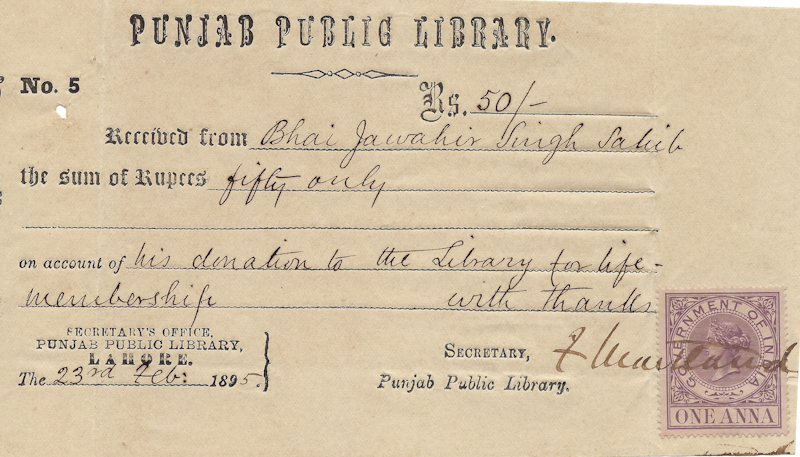 PUNJAB PUBLIC LIBRARY.
No. 5
Rs. 50/-
Received from Bhai Jawahir Singh Sahib
the sum of Rupees fifty only
on account of his donation to the Library for life-
membership with thanks
SECRETARY'S OFFICE,
PUNJAB PUBLIC LIBRARY,
LAHORE.
The 23rd Feb: 1895.
SECRETARY,
Punjab Public Library.
GOVERNMENT OF INDIA
ONE ANNA